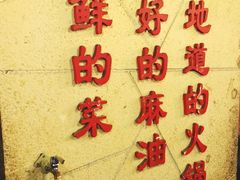 地道的火锅
好的麻油
鲜的菜